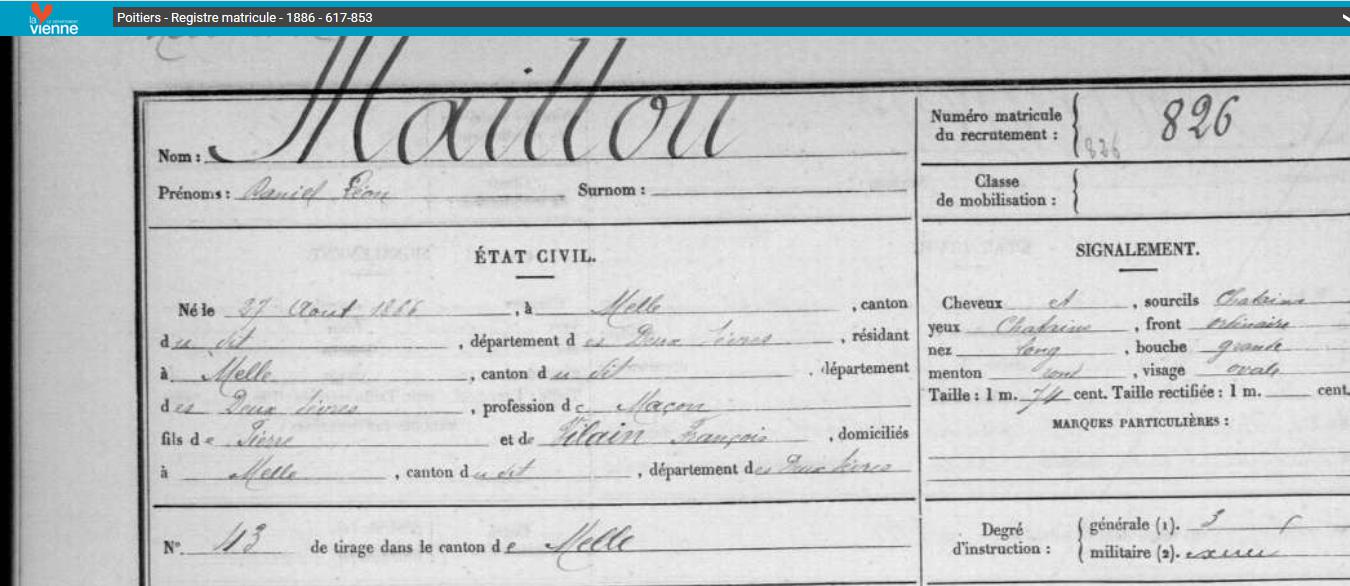 la vienne
LE DÉPARTEMENT
Poitiers - Registre matricule - 1886 - 617-853
Maillou
Nom :
Prénoms : Daniel Léon Surnom :
Numéro matricule
du recrutement : 826
826
Classe
de mobilisation :
ÉTAT CIVIL.
Né le 27 Aout 1886, à Melle, canton
du dit, département des Deux Sèvres, résidant
à Melle, canton du dit, département
des Deux Sèvres, profession de Maçon
fils de Pierre et de Vilain François, domiciliés
à Melle, canton du dit, département des Deux Sèvres
N° 43 de tirage dans le canton de Melle
SIGNALEMENT.
Cheveux et, sourcils Chatains
yeux Chatains, front ordinaire
nez long, bouche grande
menton rond, visage ovale
Taille : 1 m. 74 cent. Taille rectifiée : 1 m. cent.
MARQUES PARTICULIÈRES :
Degré
d'instruction :
générale (1). 3
militaire (2).